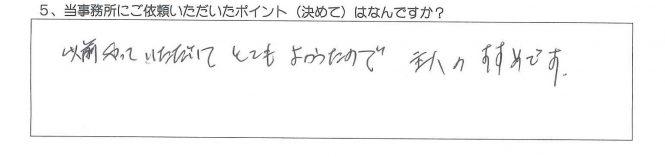 5、当事務所にご依頼いただいたポイント（決めて）はなんですか？
以前やっていただいて とても よかったので 主人の すすめです.